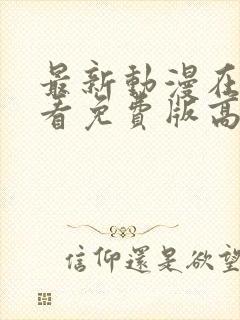 最新動漫在
看免費版高
信仰還是欲望